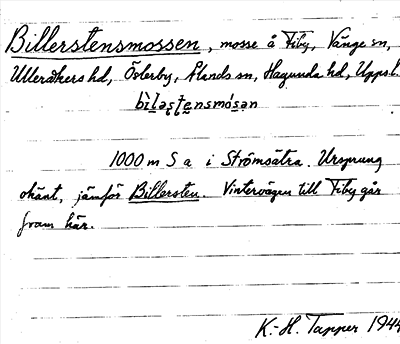 Billerstensmossen, mosse å Fiby, Vänge sn,
Ulleråkers hd, Österby, Ålands sn, Hagunda hd, Uppsl.
bìləʂʈensmós̩ən
1000 m S a i Strömsätra. Ursprung
okänt, jämför Billersten. Vintervägen till Fiby går
fram här.
K.-H. Tapper 1944